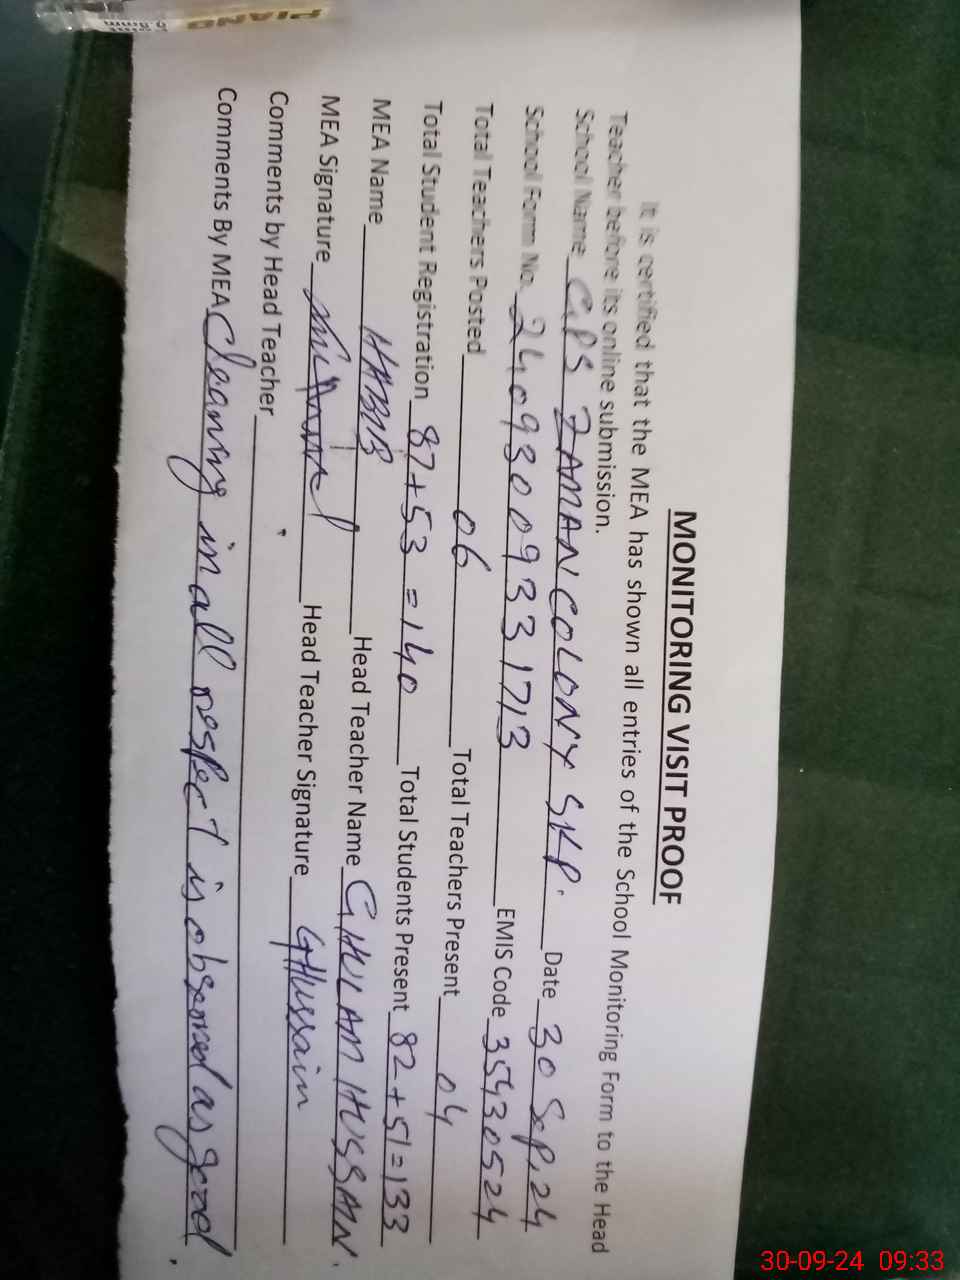 MONITORING VISIT PROOF
It is certified that the MEA has shown all entries of the School Monitoring Form to the Head
Teacher before its online submission.
School Name G.P.S ZAMAN COLONY SKP. Date 30 Sep, 24
School Form No. 2409300933 1713 EMIS Code 35430524
Total Teachers Posted 06 Total Teachers Present 04
Total Student Registration 87+53 = 140 Total Students Present 82+51=133
MEA Name HABIB Head Teacher Name GHULAM HUSSAN.
MEA Signature Head Teacher Signature GHussain
Comments by Head Teacher
Comments By MEA Cleaning in all respect is observed as good.
PIANO
0.8mm
30-09-24 09:33